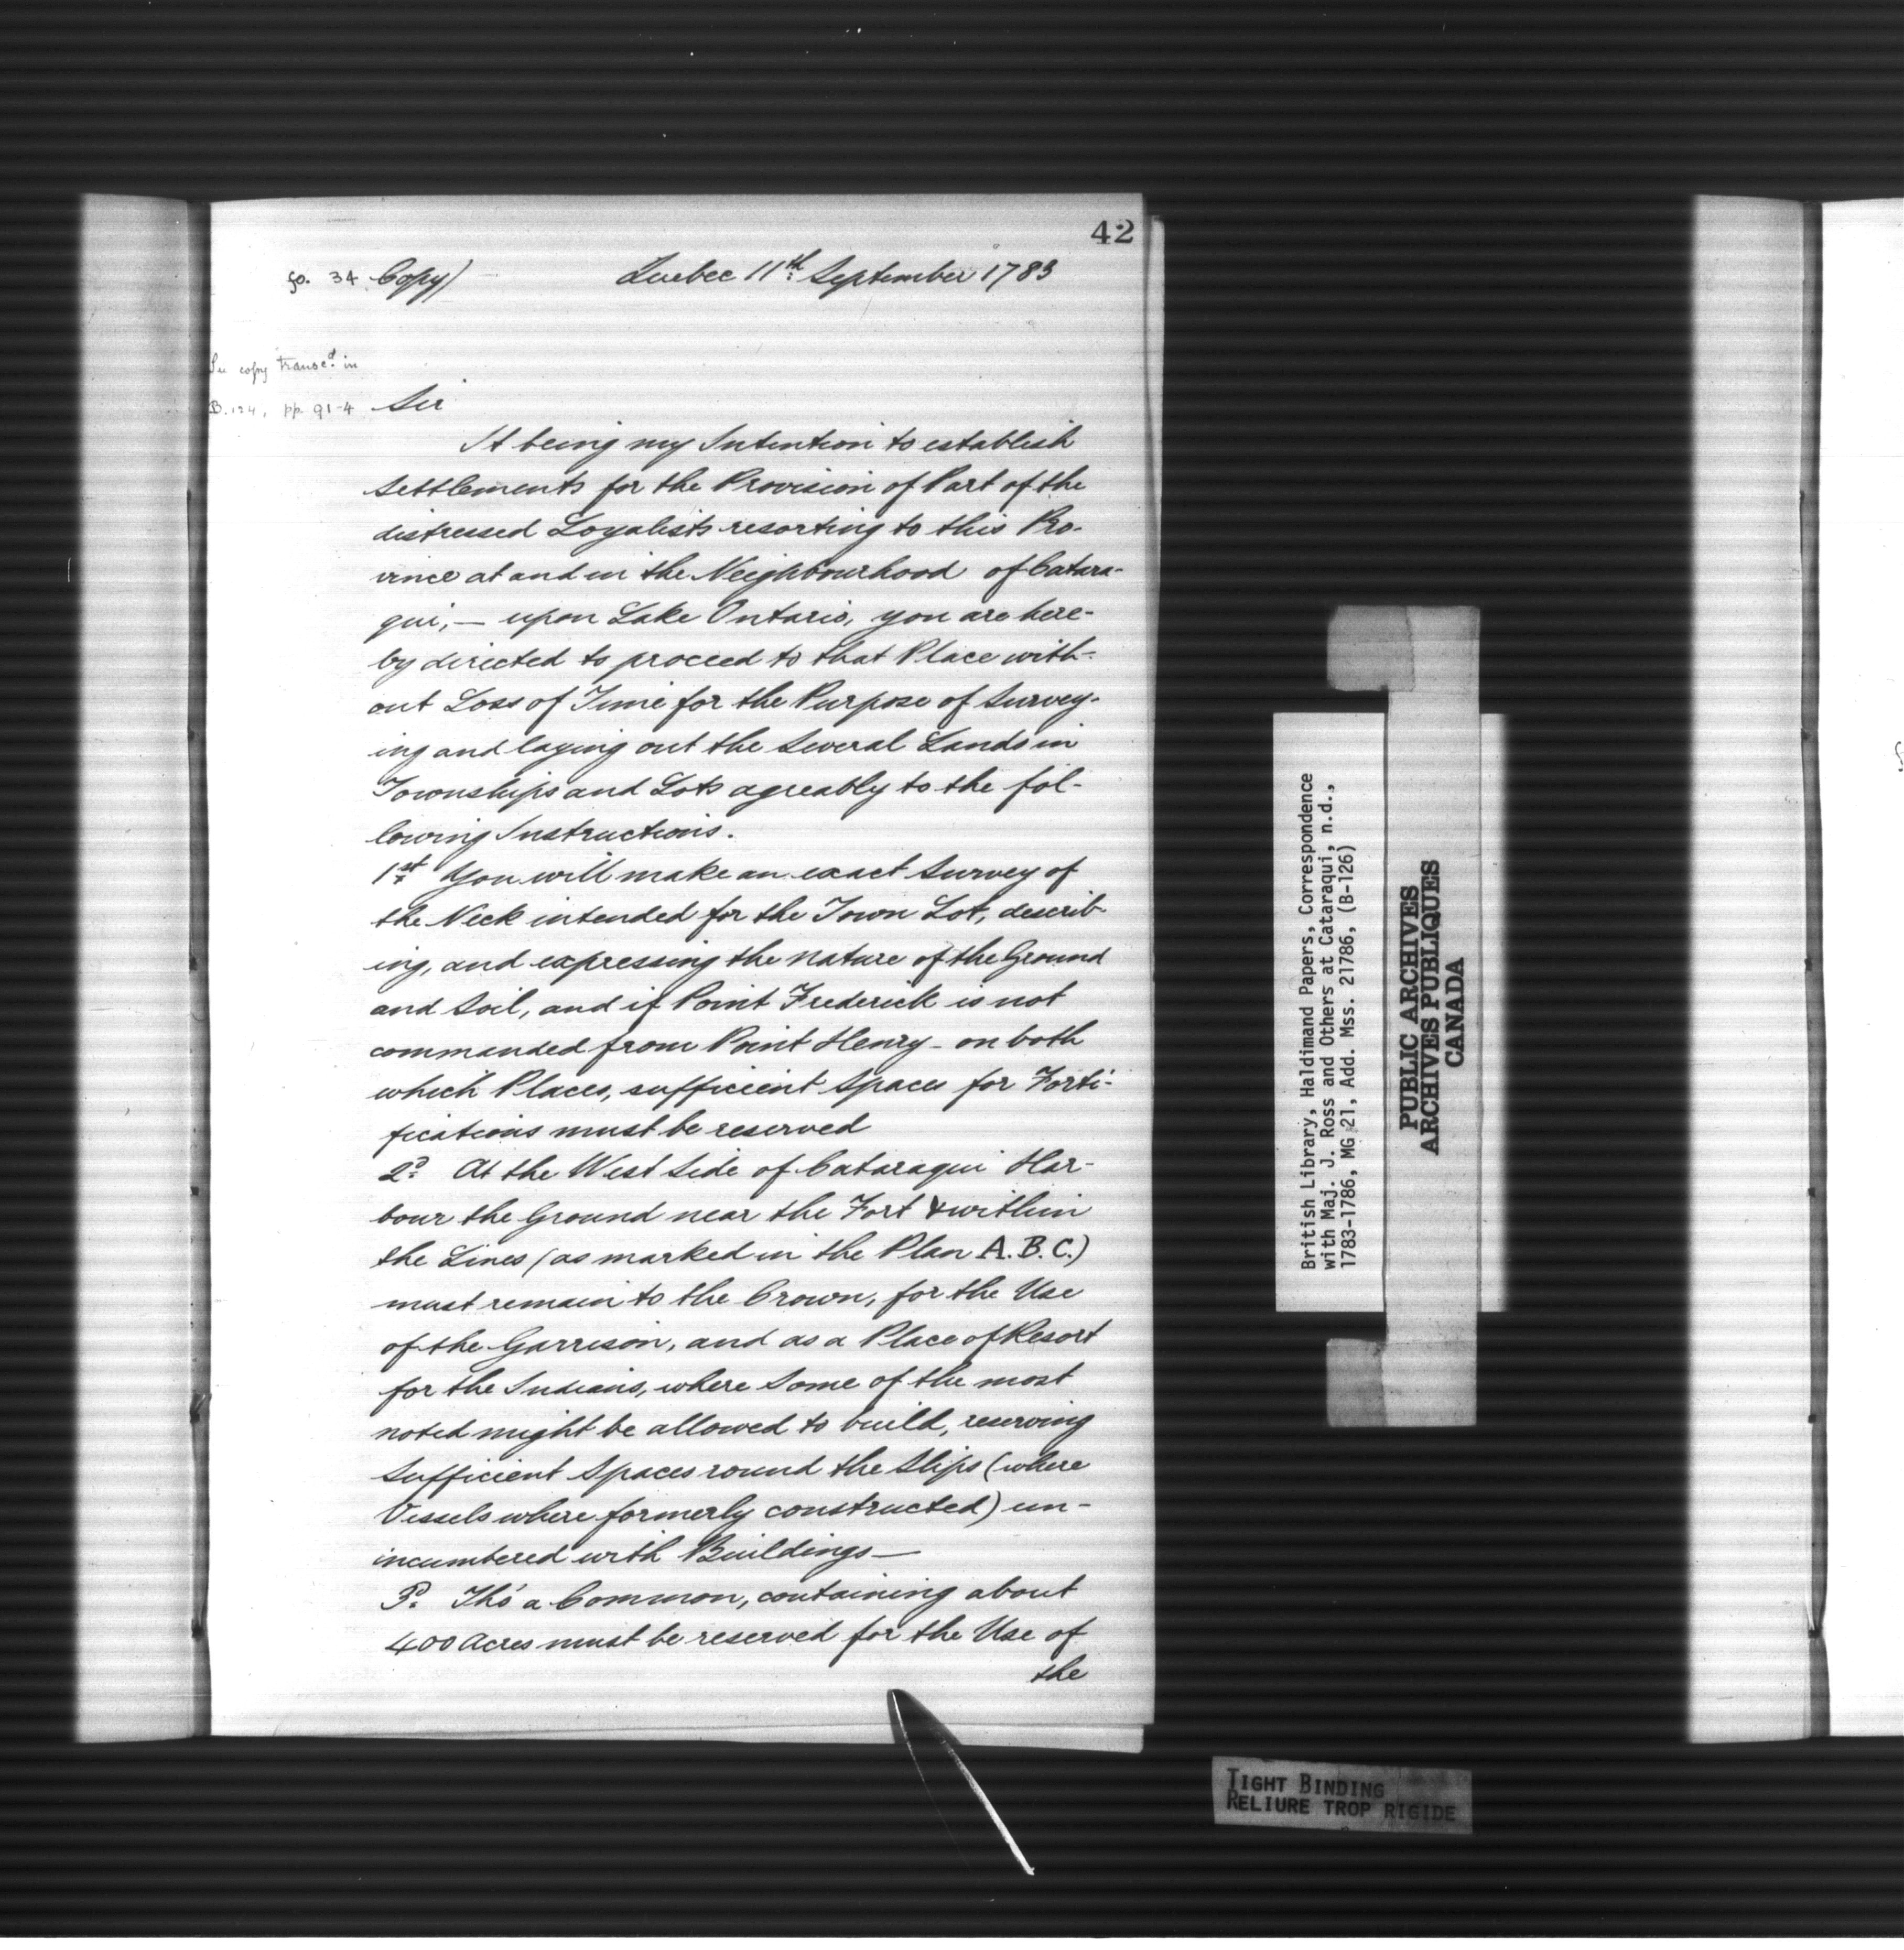 42
fo. 34 Copy) Quebec 11th September 1783
See copy transcd. in
B. 124, pp. 91-4
Sir
It being my Intention to establish
Settlements for the Provision of Part of the
distressed Loyalists resorting to this Pro-
vince at and in the Neighbourhood of Catara-
qui, — upon Lake Ontario, you are here-
by directed to proceed to that Place with-
out Loss of Time for the Purpose of Survey-
ing and laying out the Several Lands in
Townships and Lots agreably to the fol-
lowing Instructions.
1st You will make an exact Survey of
the Neck intended for the Town Lot, describ-
ing, and expressing the nature of the Ground
and Soil, and if Point Frederick is not
commanded from Point Henry - on both
which Places, sufficient Spaces for Forti-
fications must be reserved
2d. At the West Side of Cataraqui Har-
bour the Ground near the Fort & within
the Lines (as marked in the Plan A. B. C.)
must remain to the Crown, for the Use
of the Garrison, and as a Place of Resort
for the Indians, where Some of the most
noted might be allowed to build, reserving
Sufficient Spaces round the Slips (where
Vessels where formerly constructed) un-
incumbered with Buildings —
3d. Tho' a Common, containing about
400 Acres must be reserved for the Use of
the
British Library, Haldimand Papers, Correspondence
with Maj. J. Ross and Others at Cataraqui, n.d.,
1783-1786, MG 21, Add. Mss. 21786, (B-126)
PUBLIC ARCHIVES
ARCHIVES PUBLIQUES
CANADA
TIGHT BINDING
RELIURE TROP RIGIDE